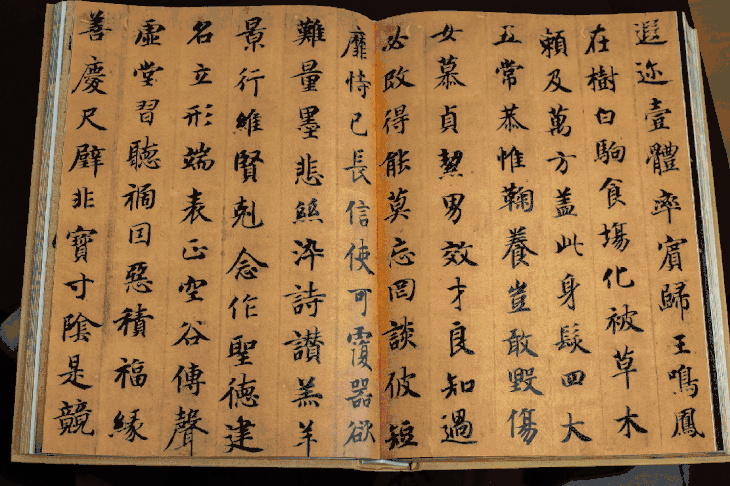 遐迩壹體率賓歸王鳴鳳
在樹白駒食場化被草木
賴及萬方蓋此身髮四大
五常恭惟鞠養豈敢毀傷
女慕貞絜男效才良知過
必改得能莫忘罔談彼短
靡恃己長信使可覆器欲
難量墨悲絲淬詩讚羔羊
景行維賢剋念作聖德建
名立形端表正空谷傳聲
虛堂習聽禍因惡積福緣
善慶尺璧非寶寸陰是競